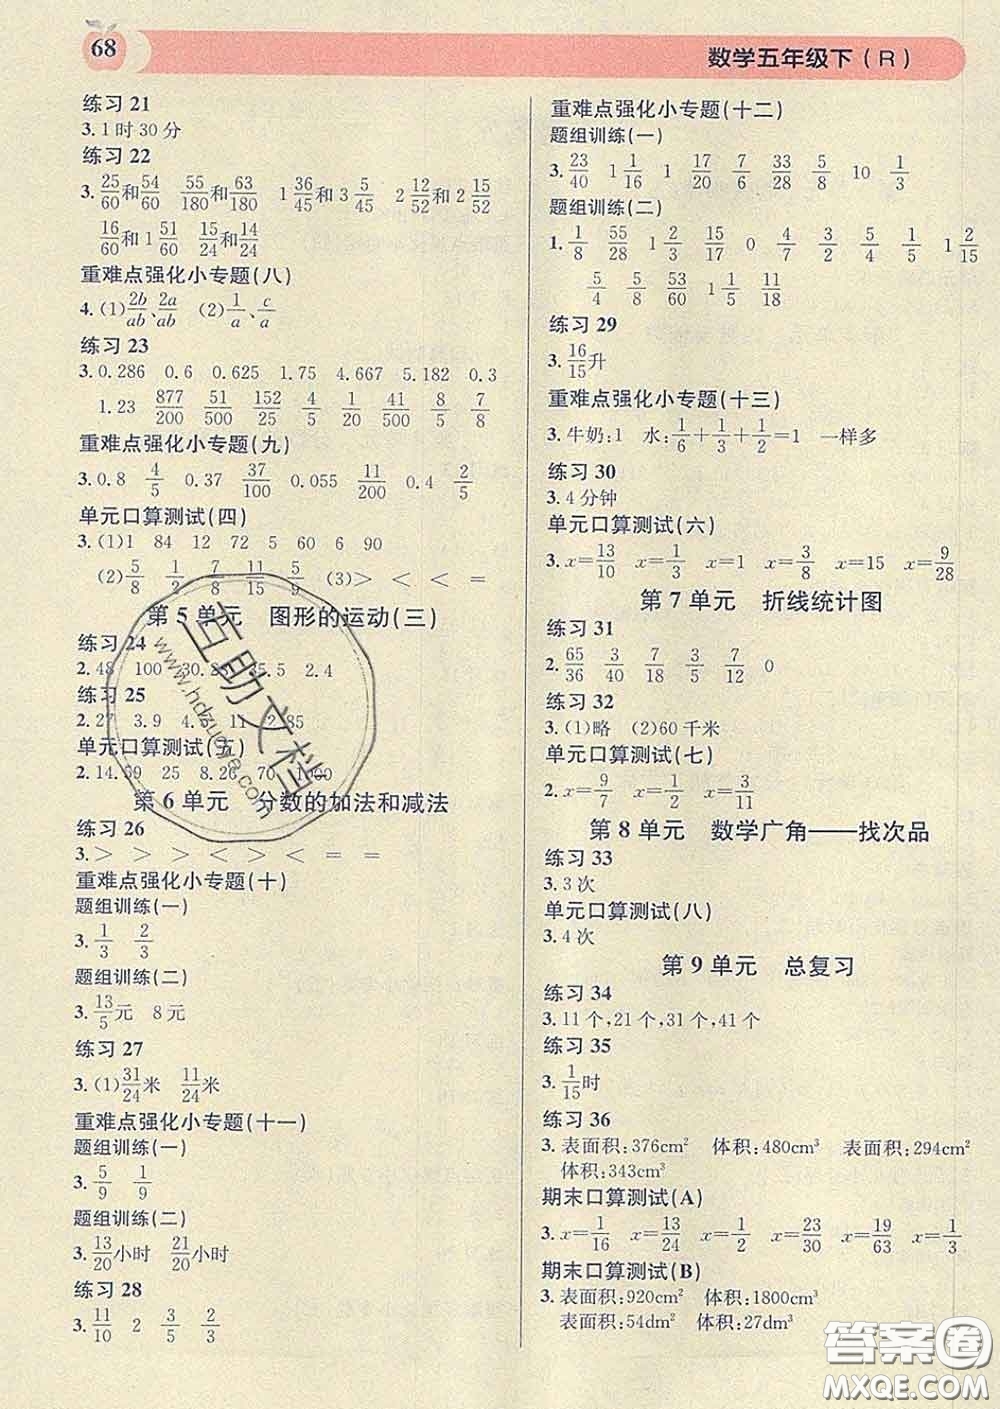 68
数学五年级下(R)
练习 21
3. 1 时 30 分
练习 22
3. 25/60和54/60 55/180和63/180 1 36/45和 3 5/45 2 12/52和 2 15/52
16/60和 1 51/60 15/24和14/24
重难点强化小专题(八)
4. (1)2b/ab、2a/ab (2)1/a、c/a
练习 23
3. 0.286 0.6 0.625 1.75 4.667 5.182 0.3
1.23 877/200 51/500 152/25 4/5 1/20 41/50 8/5 7/8
重难点强化小专题(九)
3. 0.8 4/5 0.37 37/100 0.055 11/200 0.4 2/5
单元口算测试(四)
3. (1)1 84 12 72 5 60 6 90
(2)5/8 1/2 7/8 11/15 5/9 (3)> < < =
第 5 单元 图形的运动(三)
练习 24
2. 48 100 30.25 35.5 2.4
练习 25
2. 27 3.9 4.5 11 2.85
单元口算测试(五)
2. 14.59 25 8.26 70 1000
第 6 单元 分数的加法和减法
练习 26
3. > > > < > < = =
重难点强化小专题(十)
题组训练(一)
3. 1/3 2/3
题组训练(二)
3. 13/5元 8 元
练习 27
3. (1)31/24米 11/24米
重难点强化小专题(十一)
题组训练(一)
3. 5/9 1/9
题组训练(二)
3. 13/20小时 21/20小时
练习 28
3. 11/10 2 3/5 2/3
重难点强化小专题(十二)
题组训练(一)
3. 23/40 1 1/16 1 17/20 7/6 3/8 5/8 10 1/3
题组训练(二)
1. 1/8 55/28 1 2/3 15/17 0 4/7 3/2 4/5 1/5 1 2/15
5/4 5/8 53/60 1 1/5 11/18
练习 29
3. 16/15升
重难点强化小专题(十三)
3. 牛奶:1 水:1/6+1/3+1/2=1 一样多
练习 30
3. 4 分钟
单元口算测试(六)
3. x=13/10 x=1/3 x=1 x=3/8 x=15 x=9/28
第 7 单元 折线统计图
练习 31
2. 65/36 3/40 4/7 3/10 7/12 0
练习 32
3. (1)略 (2)60 千米
单元口算测试(七)
2. x=9/7 x=1/2 x=3/11
第 8 单元 数学广角——找次品
练习 33
3. 3 次
单元口算测试(八)
3. 4 次
第 9 单元 总复习
练习 34
3. 11 个,21 个,31 个,41 个
练习 35
3. 1/15时
练习 36
3. 表面积:376cm² 体积:480cm³ 表面积:294cm²
体积:343cm³
期末口算测试(A)
3. x=1/16 x=13/24 x=1/2 x=23/30 x=19/63 x=1/3
期末口算测试(B)
3. 表面积:920cm² 体积:1800cm³
表面积:54dm² 体积:27dm³
互助文档
www.hdzuoye.com
答案圈
MXQE.COM